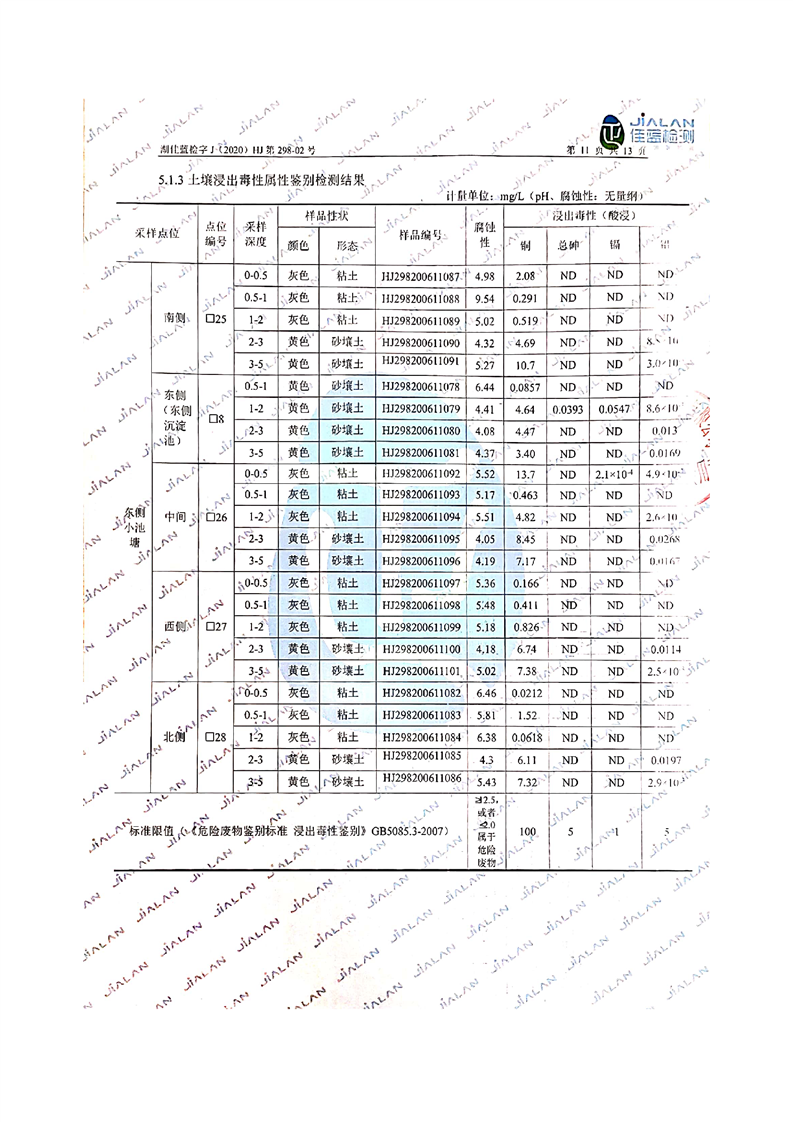 JiALAN
佳蓝检测
湖佳蓝检字 J（2020）HJ 第 298-02 号 第 11 页 共 13 页
5.1.3 土壤浸出毒性属性鉴别检测结果
计量单位：mg/L（pH、腐蚀性：无量纲）
采样点位 点位编号 采样深度 样品性状 样品编号 腐蚀性 浸出毒性（酸浸）
颜色 形态 铜 总砷 镉 铅
东侧小池塘
南侧 □25
0-0.5 灰色 粘土 HJ298200611087 4.98 2.08 ND ND ND
0.5-1 灰色 粘土 HJ298200611088 9.54 0.291 ND ND ND
1-2 灰色 粘土 HJ298200611089 5.02 0.519 ND ND ND
2-3 黄色 砂壤土 HJ298200611090 4.32 4.69 ND ND
3-5 黄色 砂壤土 HJ298200611091 5.27 10.7 ND ND
东侧（东侧沉淀池） □8
0.5-1 黄色 砂壤土 HJ298200611078 6.44 0.0857 ND ND ND
1-2 黄色 砂壤土 HJ298200611079 4.41 4.64 0.0393 0.0547
2-3 黄色 砂壤土 HJ298200611080 4.08 4.47 ND ND 0.013
3-5 黄色 砂壤土 HJ298200611081 4.37 3.40 ND ND 0.0169
中间 □26
0-0.5 灰色 粘土 HJ298200611092 5.52 13.7 ND 2.1×10⁻⁴
0.5-1 灰色 粘土 HJ298200611093 5.17 0.463 ND ND ND
1-2 灰色 粘土 HJ298200611094 5.51 4.82 ND ND
2-3 黄色 砂壤土 HJ298200611095 4.05 8.45 ND ND 0.0268
3-5 黄色 砂壤土 HJ298200611096 4.19 7.17 ND ND 0.0167
西侧 □27
0-0.5 灰色 粘土 HJ298200611097 5.36 0.166 ND ND ND
0.5-1 灰色 粘土 HJ298200611098 5.48 0.411 ND ND ND
1-2 灰色 粘土 HJ298200611099 5.18 0.826 ND ND ND
2-3 黄色 砂壤土 HJ298200611100 4.18 6.74 ND ND 0.0114
3-5 黄色 砂壤土 HJ298200611101 5.02 7.38 ND ND
北侧 □28
0-0.5 灰色 粘土 HJ298200611082 6.46 0.0212 ND ND ND
0.5-1 灰色 粘土 HJ298200611083 5.81 1.52 ND ND ND
1-2 灰色 粘土 HJ298200611084 6.38 0.0618 ND ND ND
2-3 黄色 砂壤土 HJ298200611085 4.3 6.11 ND ND 0.0197
3-5 黄色 砂壤土 HJ298200611086 5.43 7.32 ND ND
标准限值（《危险废物鉴别标准 浸出毒性鉴别》GB5085.3-2007） ≥12.5，或者≤2.0属于危险废物 100 5 1 5